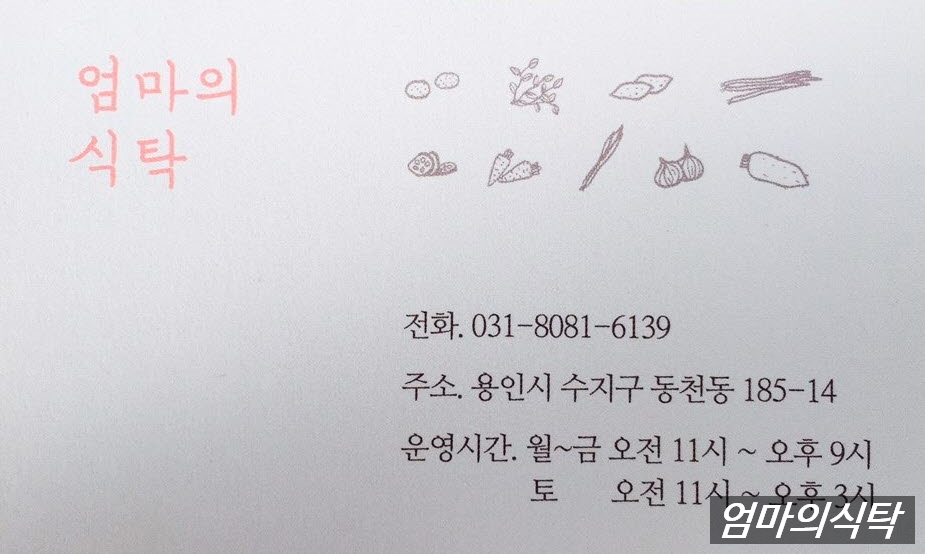 엄마의
식탁
전화. 031-8081-6139
주소. 용인시 수지구 동천동 185-14
운영시간. 월~금 오전 11시 ~ 오후 9시
토 오전 11시 ~ 오후 3시
엄마의식탁